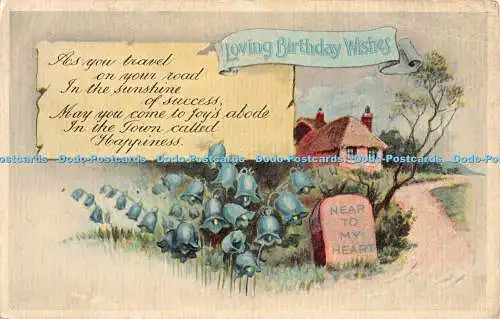 Loving Birthday Wishes
As you travel
on your road
In the sunshine
of success,
May you come to Joy's abode
In the Town called
Happiness.
Dodo-Postcards Dodo-Postcards Dodo-Postcards Dodo-Postcards Dodo-Postcards Dodo-Postcards
NEAR
TO
MY
HEART